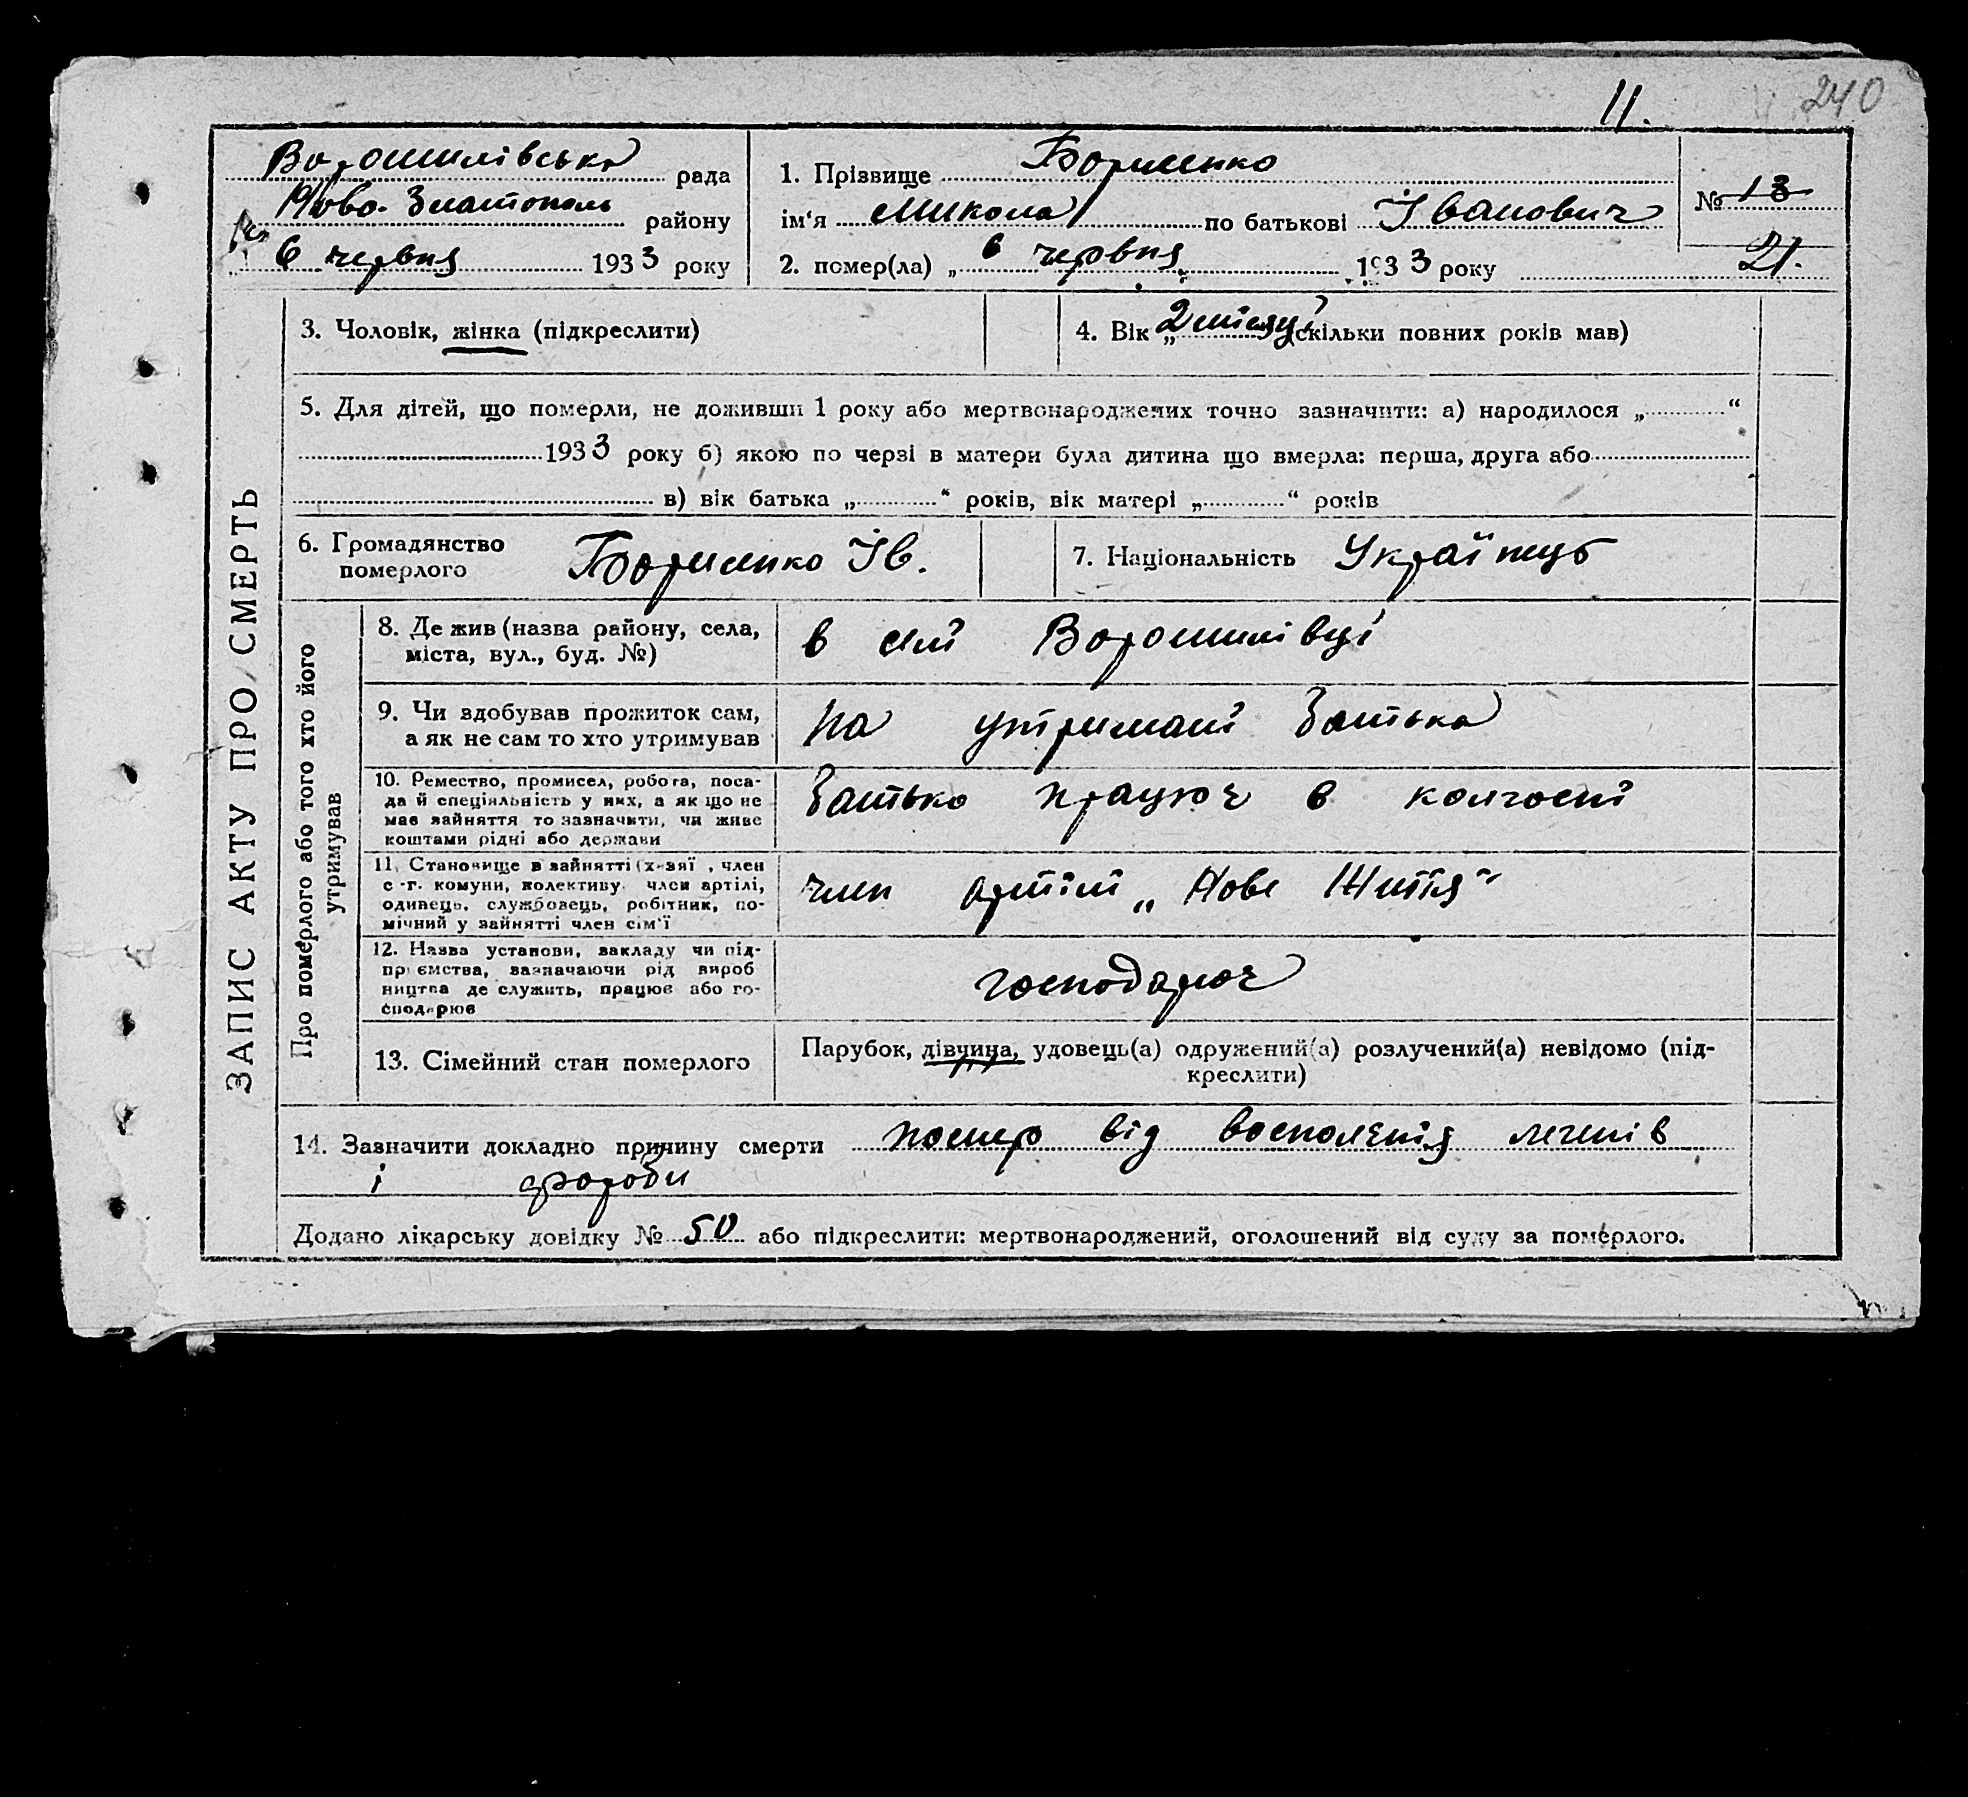 11.
240
Ворошилівська рада
Ново-Златополь району
6 червня 1933 року
1. Прізвище Борисенко
ім'я Микола по батькові Іванович
2. помер(ла) „ 6 червня 1933 року
№ 13
21.
ЗАПИС АКТУ ПРО СМЕРТЬ
3. Чоловік, жінка (підкреслити)
4. Вік „ 2 місяці (скільки повних років мав)
5. Для дітей, що померли, не доживши 1 року або мертвонароджених точно зазначити: а) народилося „ “
1933 року б) якою по черзі в матери була дитина що вмерла: перша, друга або
в) вік батька „ “ років, вік матері „ “ років
6. Громадянство
померлого
Борисенко Ів.
7. Національність Українець
Про померлого або того хто його
утримував
8. Де жив (назва району, села,
міста, вул., буд. №)
в селі Ворошилівці
9. Чи здобував прожиток сам,
а як не сам то хто утримував
на утримані батька
10. Ремество, промисел, робота, поса-
да й спеціяльність у них, а якщо не
має зайняття то зазначити, чи живе
коштами рідні або держави
батько працює в колгоспі
11. Становище в зайнятті (х-зяї , член
с.-г. комуни, колективу, член артілі,
одинець, службовець, робітник, по-
мічний у зайнятті член сім'ї
член артілі „Нове Життя"
12. Назва установи, закладу чи під-
приємства, зазначаючи рід вироб
ництва де служить, працює або го-
сподарює
господарює
13. Сімейний стан померлого
Парубок, дівчина, удовець(а) одружений(а) розлучений(а) невідомо (під-
креслити)
14. Зазначити докладно причину смерти помер від воспаленія легенів
і хороби
Додано лікарську довідку № 50 або підкреслити: мертвонароджений, оголошений від суду за померлого.